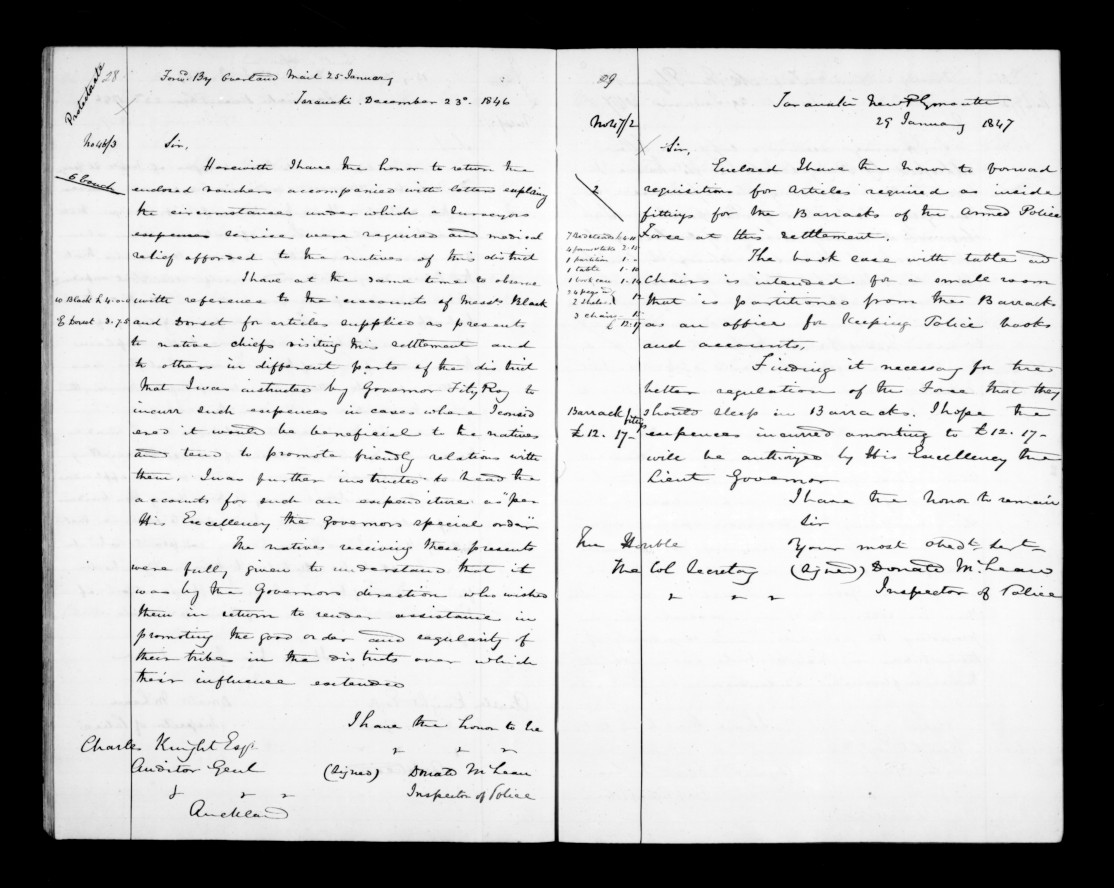 28
Forwd. By Overland Mail 25 January
Taranaki, December 23d. 1846
No 46/3
Sir,
Herewith I have the honor to return the
enclosed vouchers accompanied with letters explaing
the circumstances under which a Surveyors
expences service were required and medical
relief afforded to the natives of this district
I have at the same time to observe
with reference to the accounts of Messrs Black
and Dorset for articles supplied as presents
to native chiefs visiting this settlement and
to others in different parts of the district
that I was instructed by Governor FitzRoy to
incurr such expences in cases where I consid
ered it would be beneficial to the natives
and tend to promote friendly relations with
them. I was further instructed to head the
accounts for such an expenditure as "per
His Excellency the Governors special order"
The natives receiving these presents
were fully given to understand that it
was by the Governors direction who wished
them in return to render assistance in
promoting the good order and regularity of
their tribes in the districts over which
their influence extended
I have the honor to be
Charles Knight Esqr.
Auditor Genl
(Signed) Donald McLean
Inspector of Police
Auckland
W Black £ 4
E Dorset 3.7.5
29
Taranaki New Plymouth
29 January 1847
No 47/2
Sir,
Enclosed I have the honor to forward
2
requisitions for articles required as inside
fittings for the Barracks of the Armed Police
Force at this settlement.
The book case with table and
Chairs is intended for a small room
that is partitioned from the Barracks
as an office for keeping Police books
and accounts.
Finding it necessary for the
better regulation of the Force that they
should sleep in Barracks. I hope the
expences incurred amonting to £12. 17-
will be authorized by His Excellency the
Lieut Governor
7 Bedsteads
1 partition
1 table 1-10
1 book case
3 chairs
Barrack fittings
£ 12. 17-
I have the honor to remain
Sir
Your most obedt. Sert
The Honble
The Col Secretary
(Signed) Donald McLean
Inspector of Police